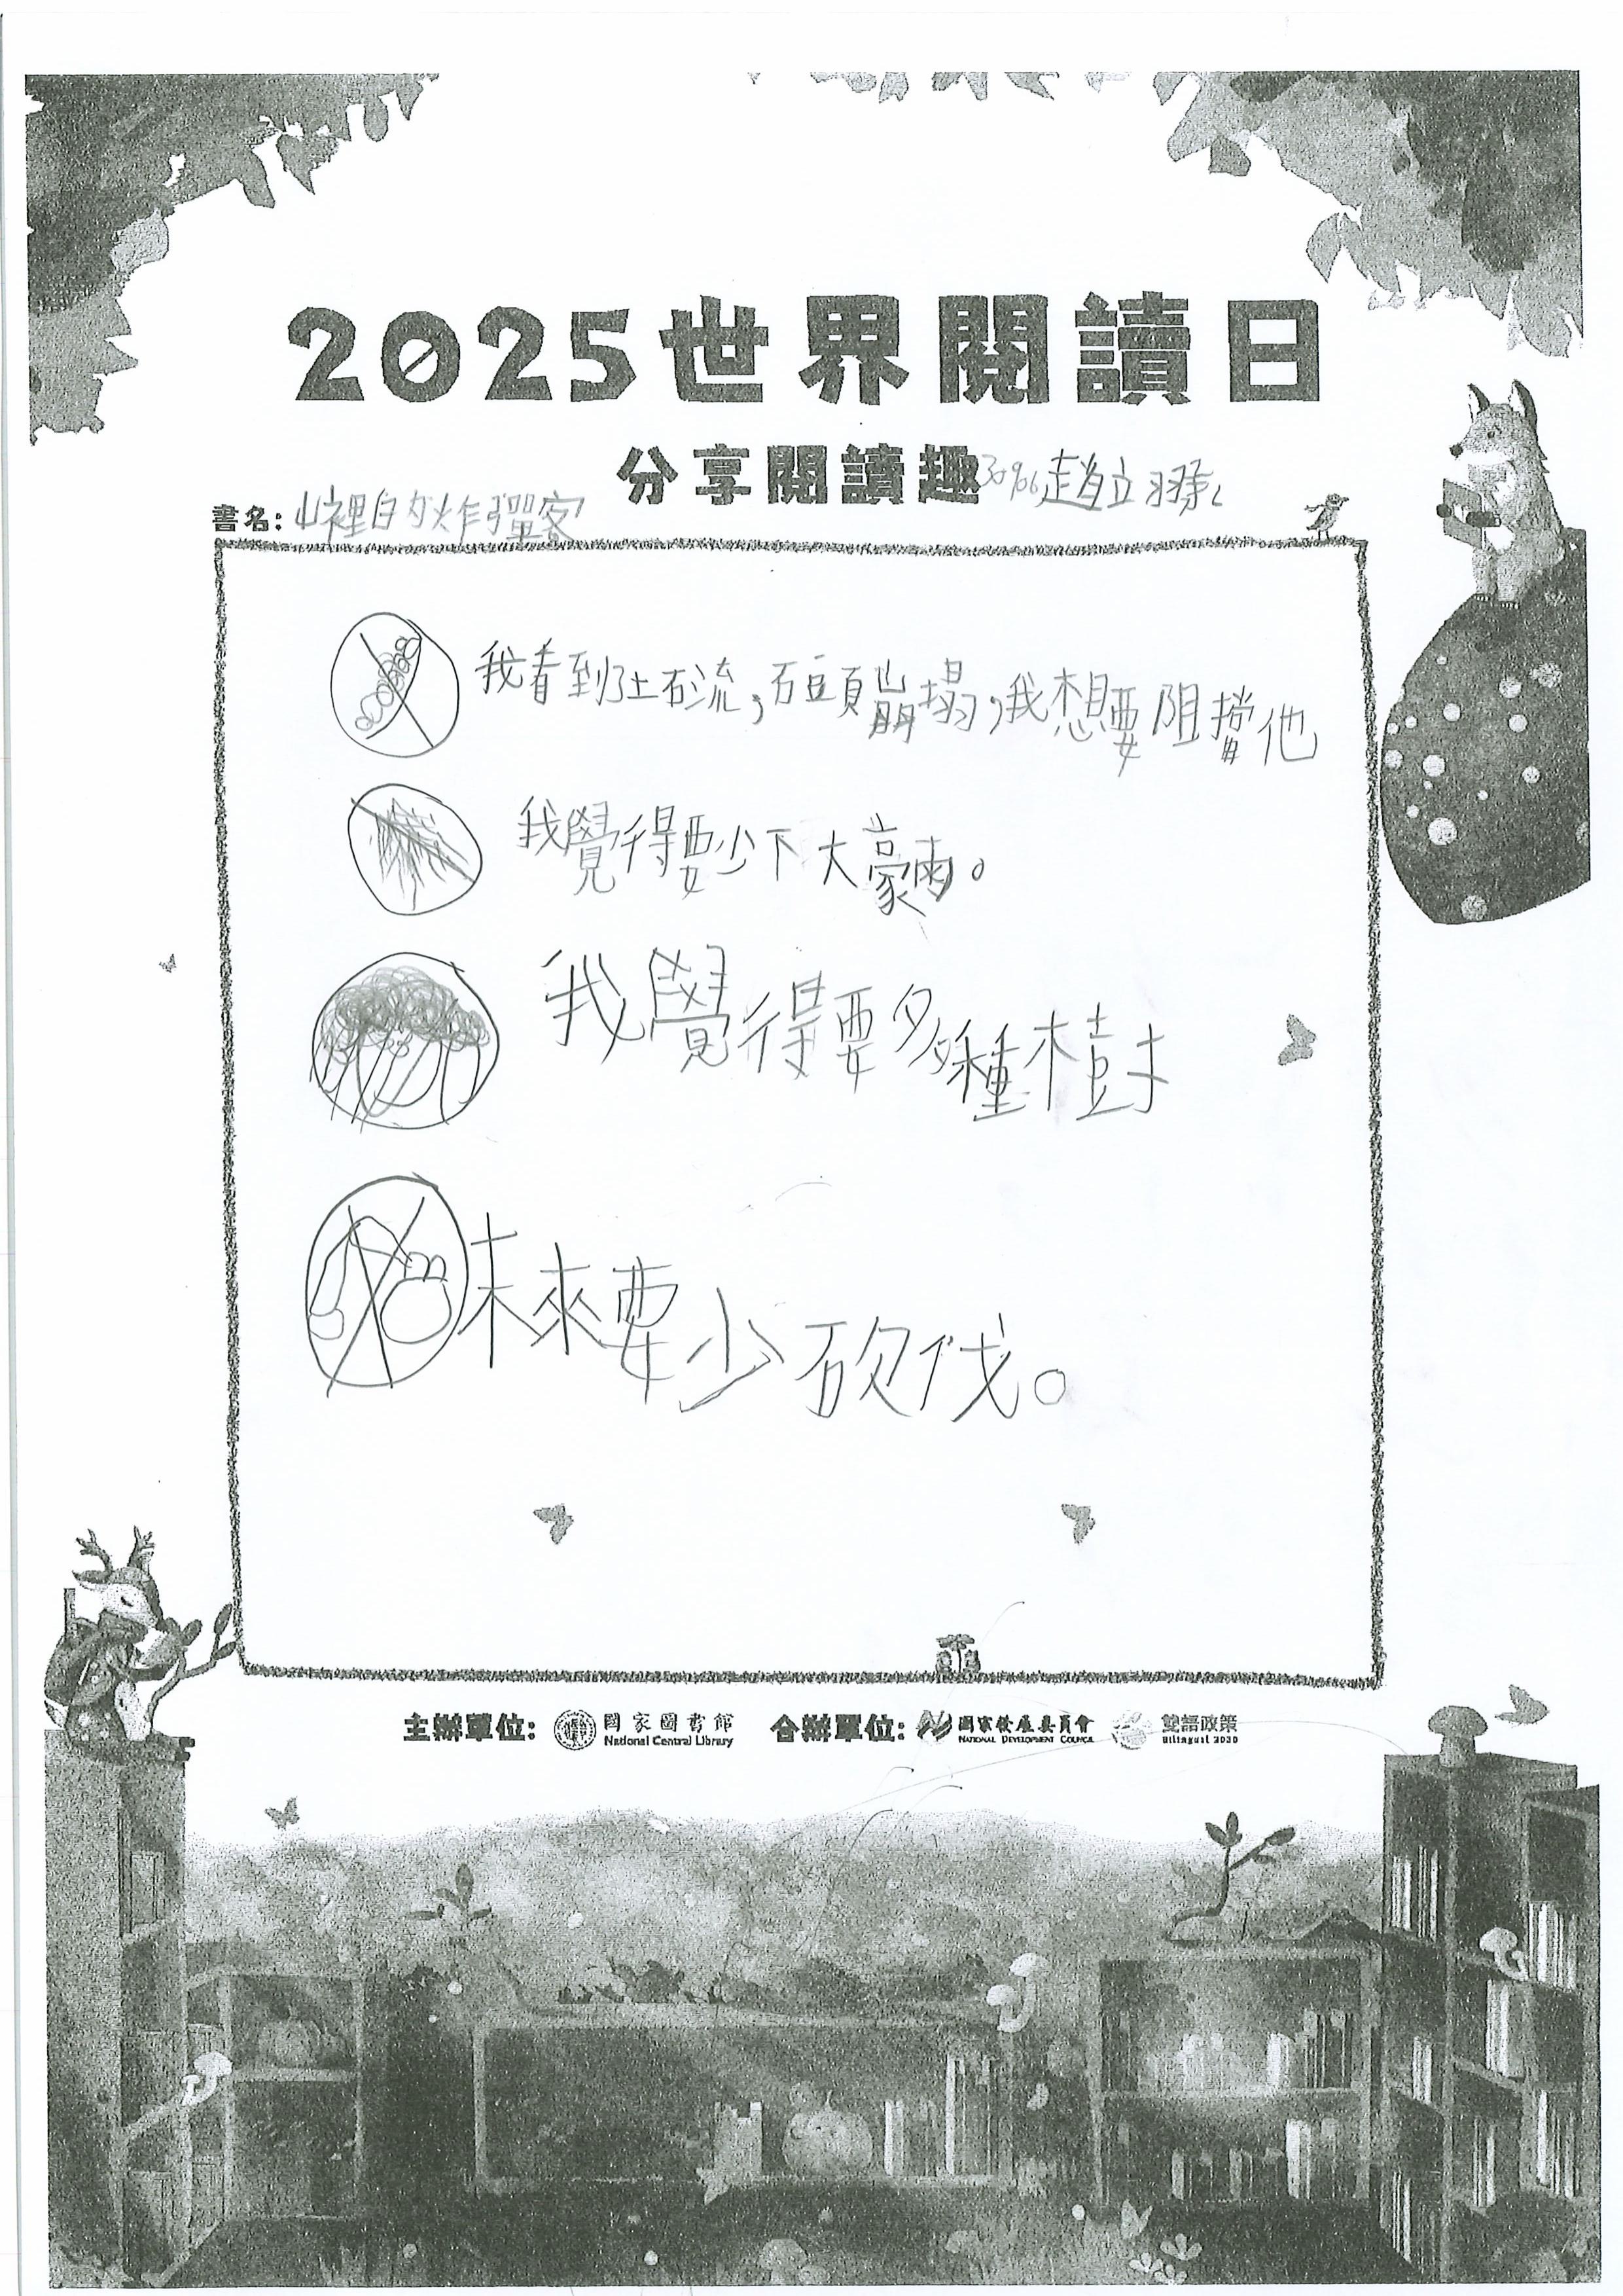 2025世界閱讀日
分享閱讀趣 30906趙立
書名: 山裡的炸彈客
我看到了土石流,石頭崩塌,我想要阻擋他
我覺得要少下大豪雨。
我覺得要多種樹
未來要少砍伐。
主辦單位: 國家圖書館 National Central Library 合辦單位: 國家發展委員會 NATIONAL DEVELOPMENT COUNCIL 雙語政策 Bilingual 2030